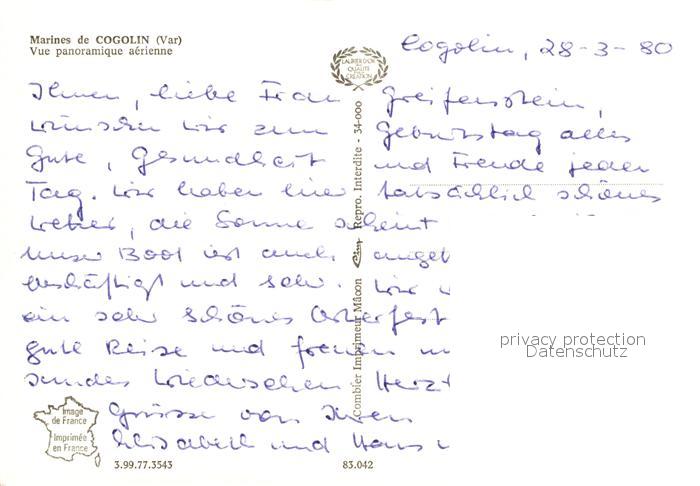 Marines de COGOLIN (Var)
Vue panoramique aérienne
LAURIER D'OR
DE
QUALITÉ
CRÉATION
Cogolin, 28-3-80
Ihnen, liebe Frau Greifenstein,
wünschen wir zum Geburtstag alles
Gute, Gesundheit und Freude jeden
Tag. Wir haben hier tatsächlich schönes
Wetter, die Sonne scheint
Unser Boot ist auch
beschäftigt und sehr. Wir
ein sehr schönes Osterfest
gute Reise und freuen
Wiedersehen. Herzl
Grüsse von Ihren
Elisabeth und Hans
Combier Imprimeur Mâcon Cim Repro. Interdite - 34-000
privacy protection
Datenschutz
Image
de France
Imprimée
en France
3.99.77.3543
83.042